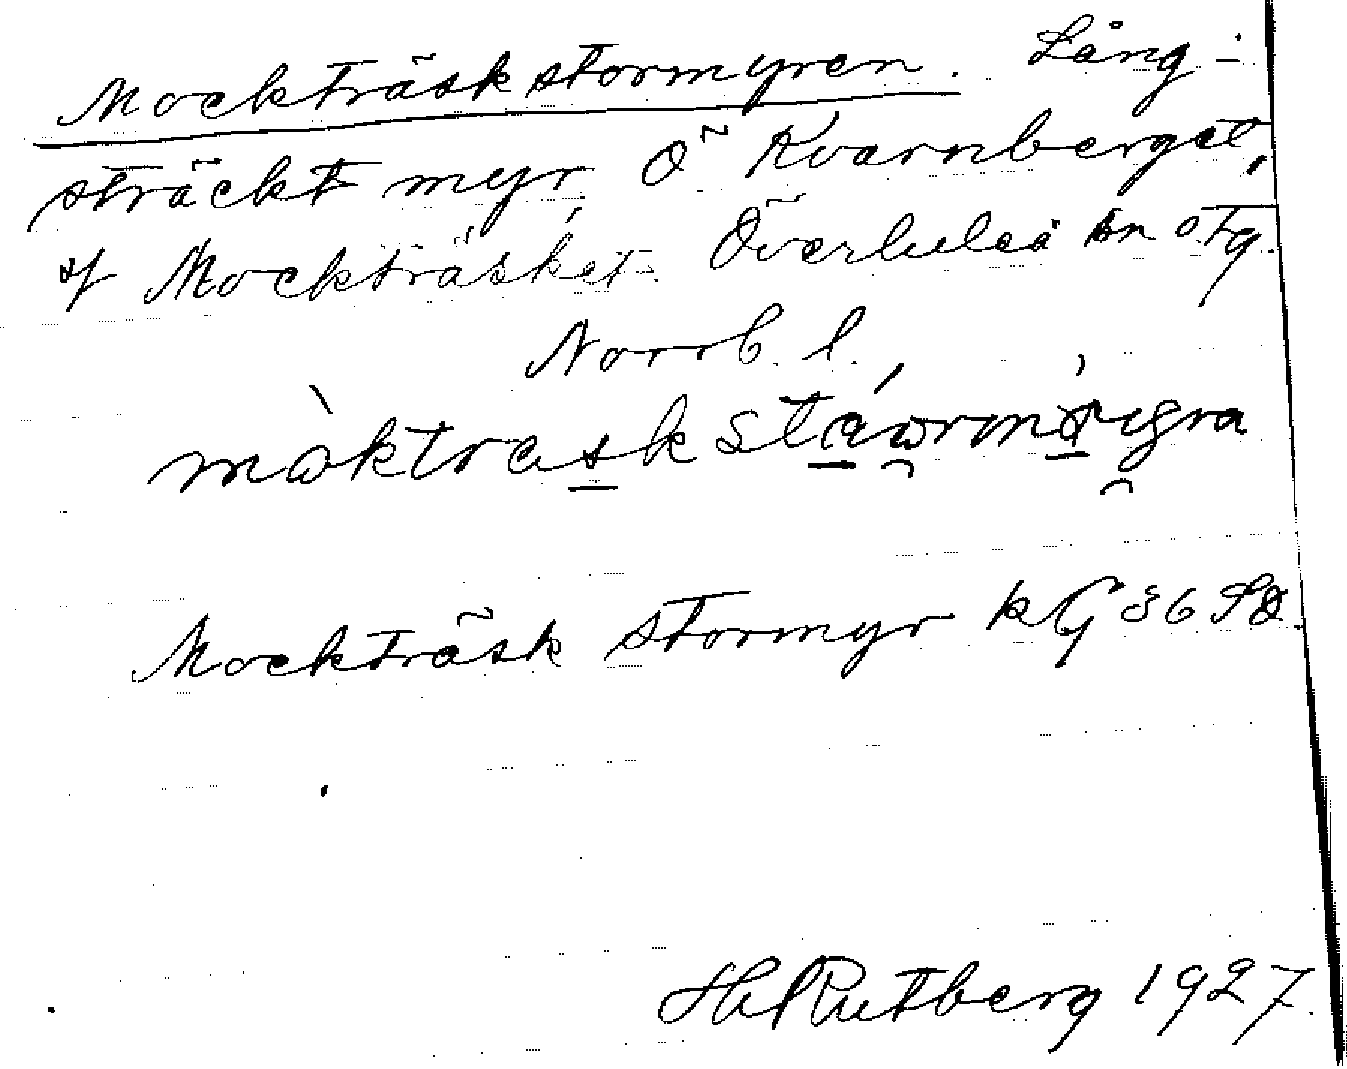 Mockträskstormyren. Lång-
sträckt myr Ö Kvarnberget,
sf Mockträsket. Överluleå sn o. tg.
Norrb. l.
Mockträsk stormyr kG 36 SO
Hj Rutberg 1927.